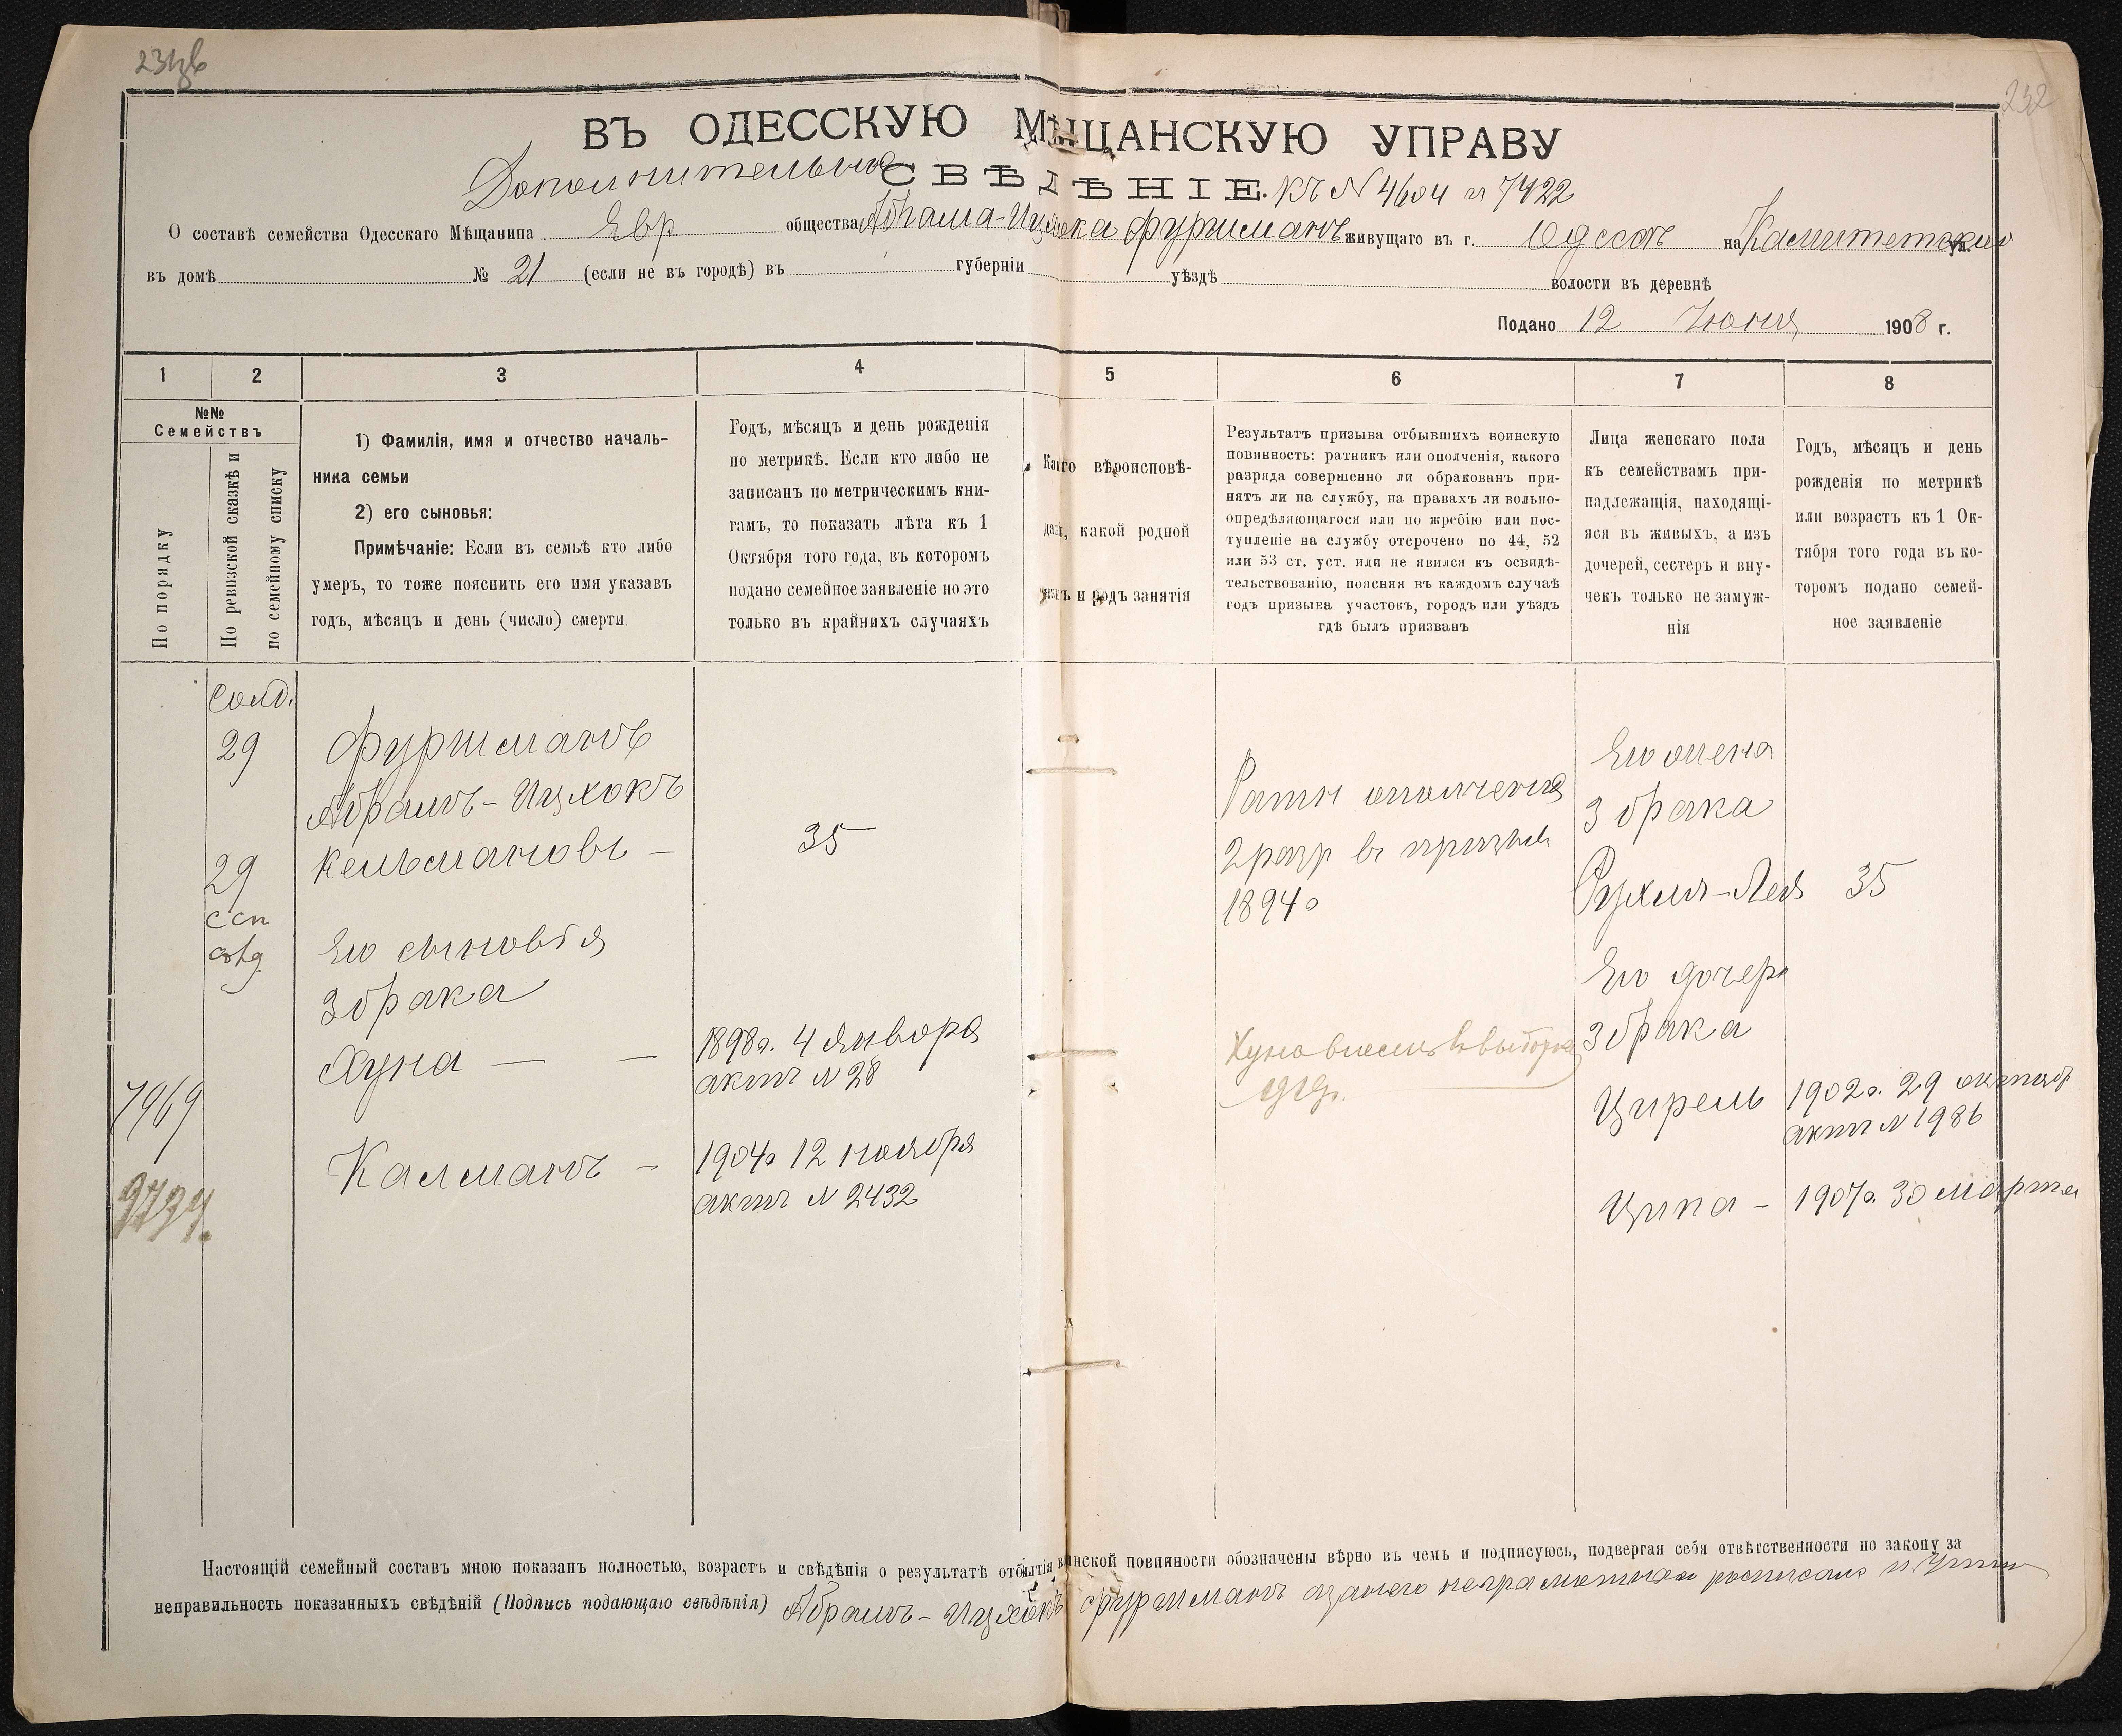 232
ВЪ ОДЕССКУЮ МѢЩАНСКУЮ УПРАВУ
Дополнительное СВѢДѢНІЕ. къ N 4604 и 7422
О составѣ семейства Одесскаго Мѣщанина Евр общества Абрама-Ицхока Фуршмановъ живущаго въ г. Одессѣ на Комитетской ул.
въ домѣ № 21 (если не въ городѣ) въ губерніи уѣздѣ волости въ деревнѣ
Подано 12 Июня 1908 г.
1 2 3 4 5 6 7 8
№№
Семействъ
По порядку
По ревизской сказкѣ и
по семейному списку
1) Фамилія, имя и отчество началь-
ника семьи
2) его сыновья:
Примѣчаніе: Если въ семьѣ кто либо
умеръ, то тоже пояснить его имя указавъ
годъ, мѣсяцъ и день (число) смерти.
Годъ, мѣсяцъ и день рожденія
по метрикѣ. Если кто либо не
записанъ по метрическимъ кни-
гамъ, то показать лѣта къ 1
Октября того года, въ которомъ
подано семейное заявленіе но это
только въ крайнихъ случаяхъ
Какого вѣроисповѣ-
данія, какой родной
языкъ и родъ занятія
Результатъ призыва отбывшихъ воинскую
повинность: ратникъ или ополченія, какого
разряда совершенно ли обракованъ при-
нятъ ли на службу, на правахъ ли вольно-
опредѣляющагося или по жребію или пос-
тупленіе на службу отсрочено по 44, 52
или 53 ст. уст. или не явился къ освидѣ-
тельствованію, поясняя въ каждомъ случаѣ
годъ призыва участокъ, городъ или уѣздъ
гдѣ былъ призванъ
Лица женскаго пола
къ семействамъ при-
надлежащія, находящі-
яся въ живыхъ, а изъ
дочерей, сестеръ и вну-
чекъ только не замуж-
нія
Годъ, мѣсяцъ и день
рожденія по метрикѣ
или возрастъ къ 1 Ок-
тября того года въ ко-
торомъ подано семей-
ное заявленіе
Солд.
29
29
ссп
Фуршмановъ
Абрамъ-Ицхокъ
Кельмановъ —
35
Его сыновья
3 брака
Хуна — —
1898г. 4 января
актъ N 28
7969
Калманъ —
1904г 12 ноября
актъ N 2432
Ратн ополченія
2 разр въ призывѣ
1894г
Хуна внесенъ въ выборку
Его жена
3 брака
Рухля-Лея 35
Его дочери
3 брака
Цирель 1902г. 29 октяб
актъ N 1986
Ципа — 1907г. 30 марта
Настоящій семейный составъ мною показанъ полностью, возрастъ и свѣдѣнія о результатѣ отбытія воинской повинности обозначены вѣрно въ чемъ и подписуюсь, подвергая себя отвѣтственности по закону за
неправильность показанныхъ свѣдѣній (Подпись подающаго свѣдѣнія) Абрамъ-Ицхокъ Фуршманъ а за него неграмотнаго росписался